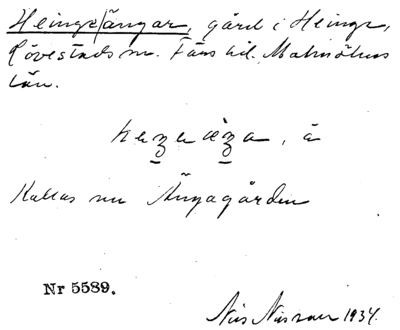 Heinge|ängar, gård i Heinge,
Lövestads sn. Färs hd. Malmöhus
län.
Kallas nu Ängagården
Nr 5589.
Nils Nilsson 1934.